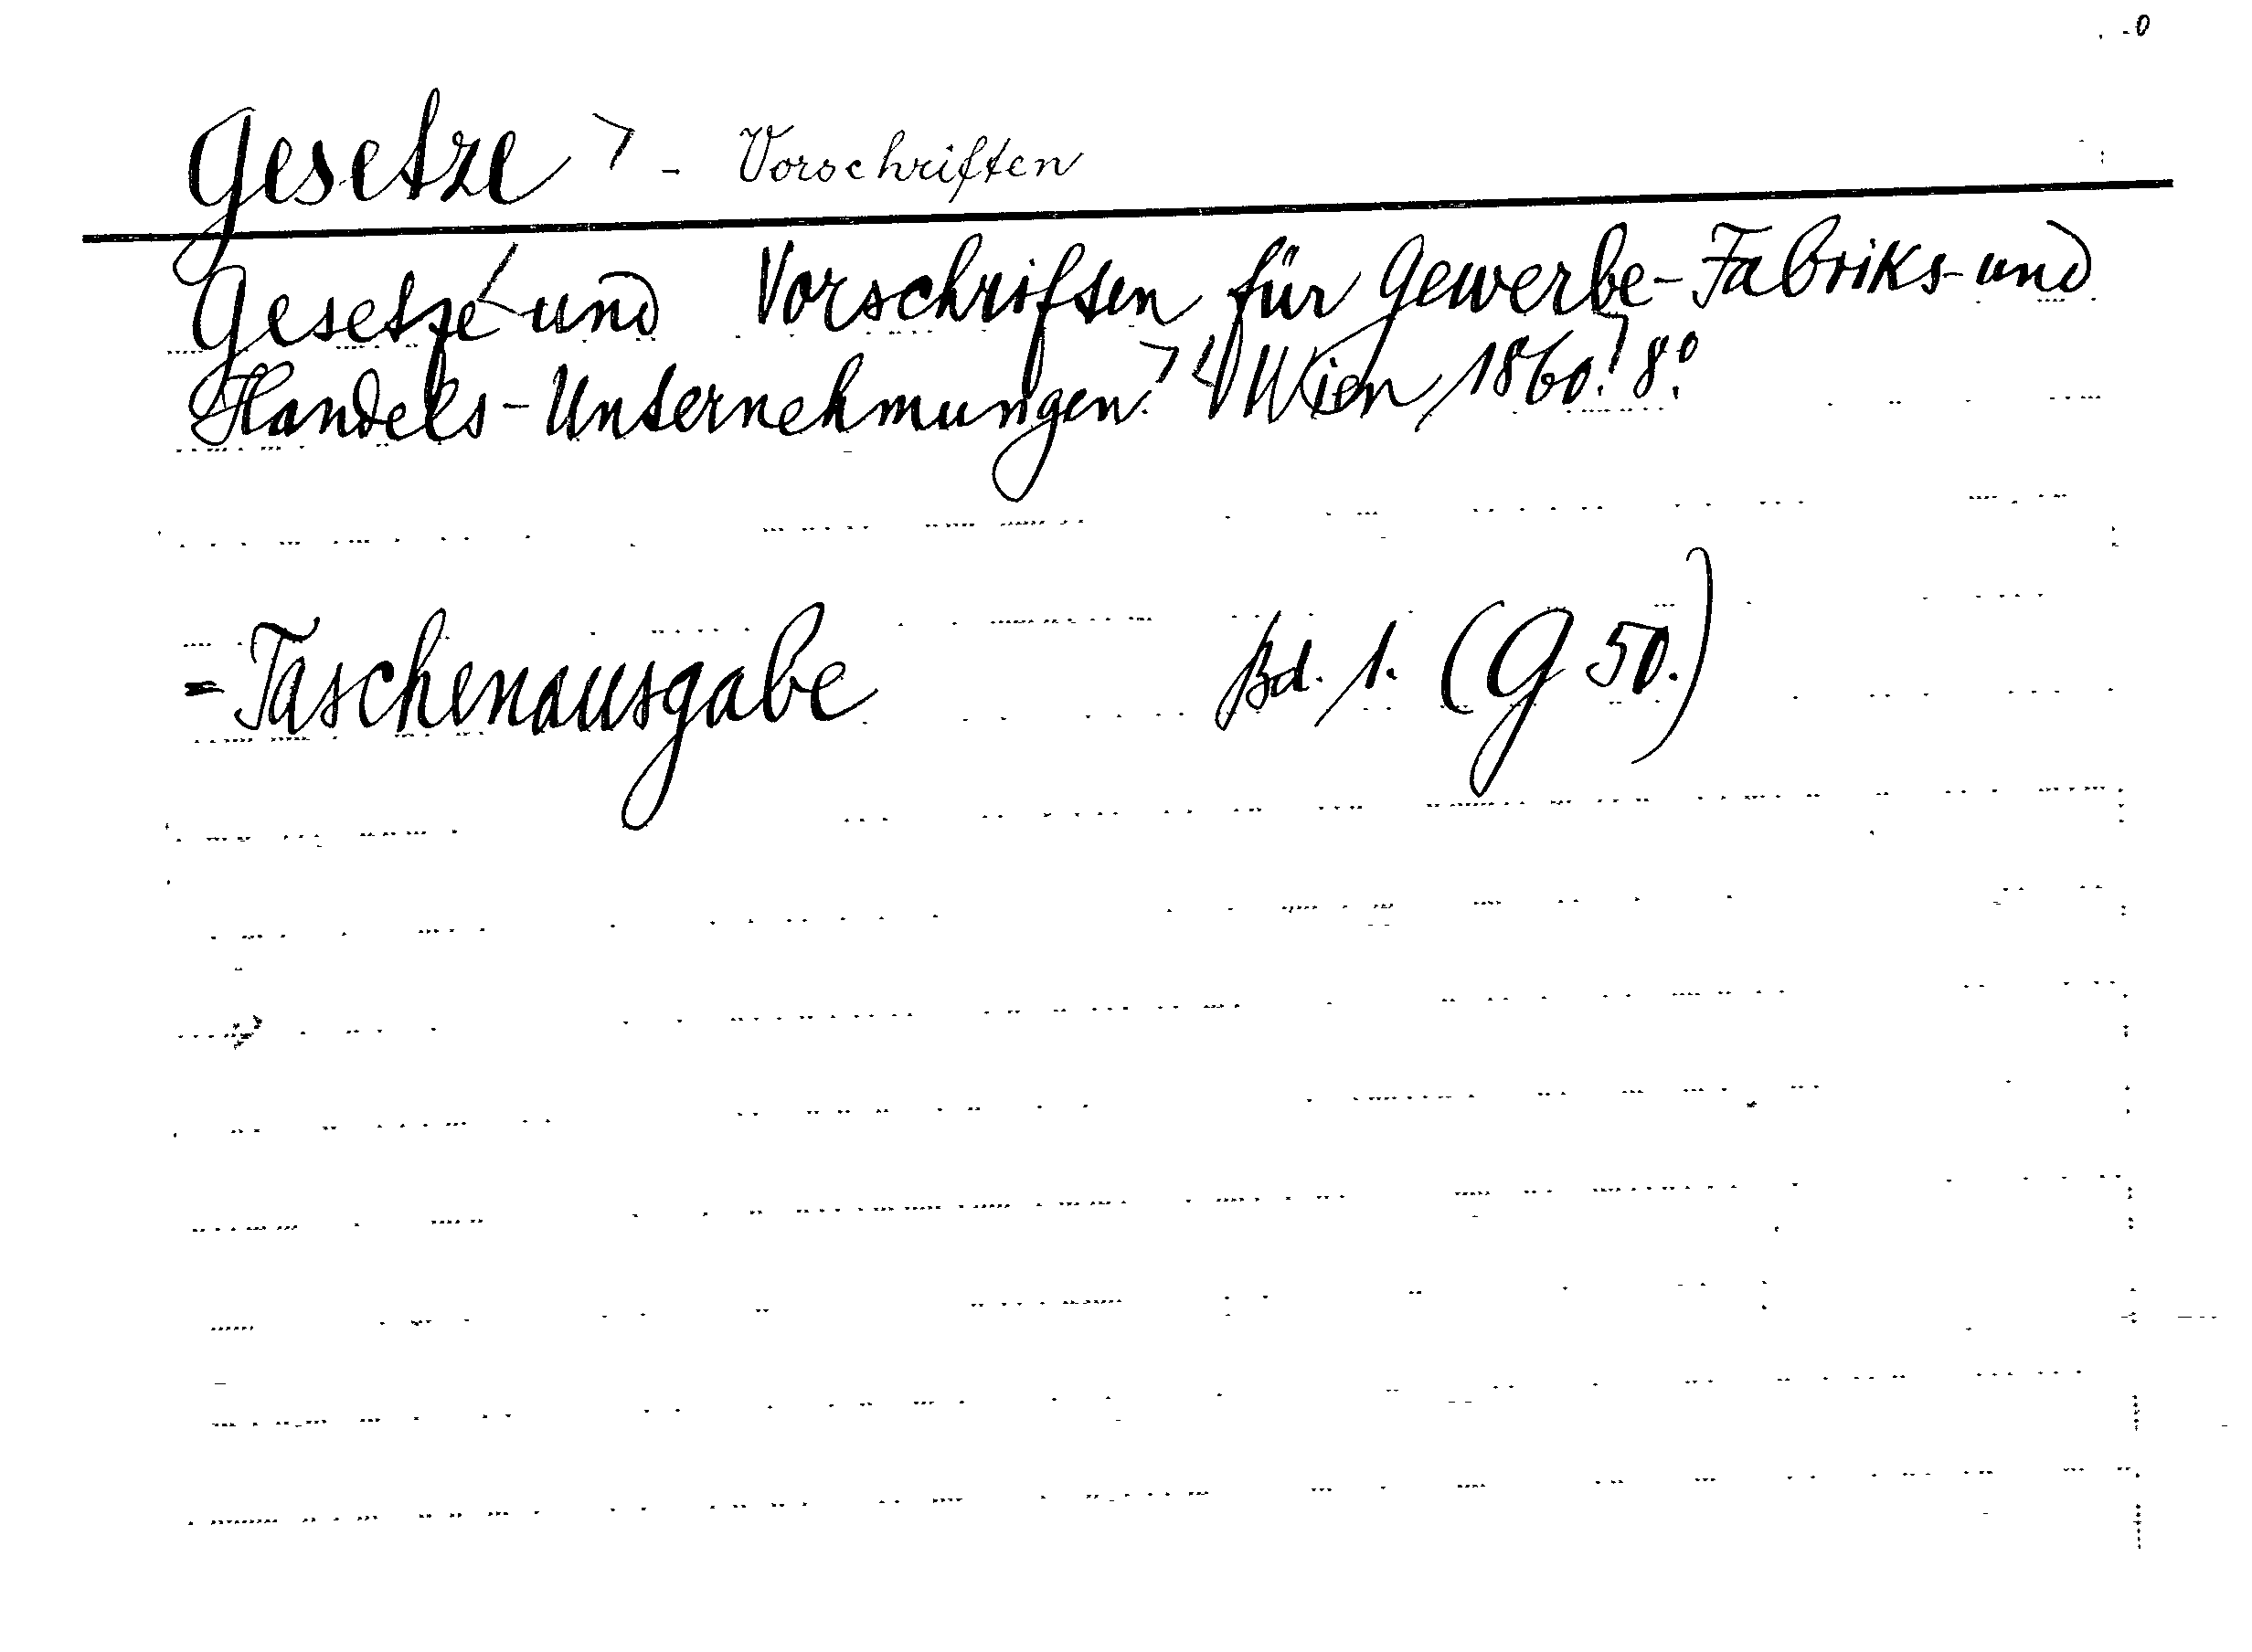 Gesetze - Vorschriften
Gesetze und Vorschriften für Gewerbe-Fabriks- und
Handels-Unternehmungen. Wien, 1860. 8.°
= Taschenausgabe Bd. 1. (G 50.)